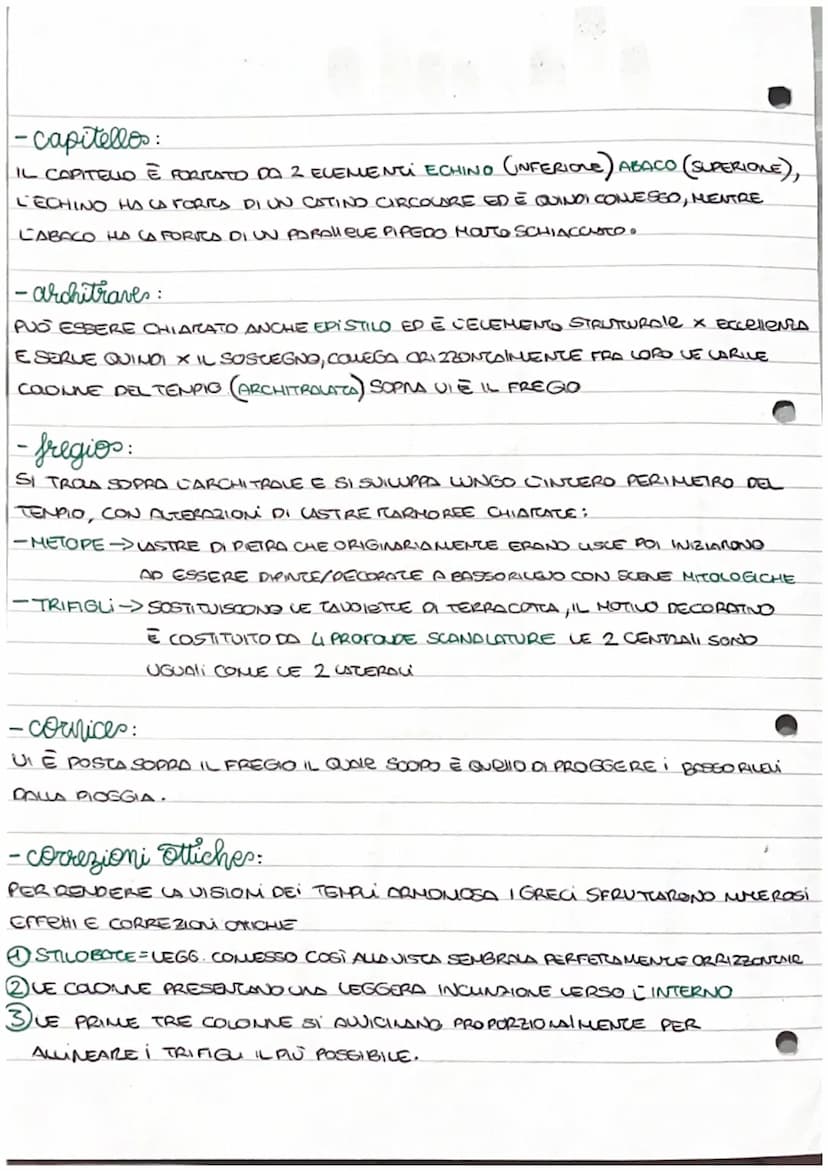 - capitello:
IL CAPITELLO È FORMATO DA 2 ELEMENTI ECHINO (INFERIORE) ABACO (SUPERIORE),
L'ECHINO HA LA FORMA DI UN CATINO CIRCOLARE ED È QUINDI CONVESSO, MENTRE
L'ABACO HA LA FORMA DI UN PARALLELEPIPEDO MOLTO SCHIACCIATO.
- architrave:
PUÒ ESSERE CHIAMATO ANCHE EPISTILO ED È L'ELEMENTO STRUTTURALE X ECCELLENZA
E SERVE QUINDI X IL SOSTEGNO, COLLEGA ORIZZONTALMENTE FRA LORO LE VARIE
COLONNE DEL TEMPIO (ARCHITRAVATA) SOPRA VI È IL FREGIO
- fregio:
SI TROVA SOPRA L'ARCHITRAVE E SI SVILUPPA LUNGO L'INTERO PERIMETRO DEL
TEMPIO, CON ALTERAZIONI DI LASTRE MARMOREE CHIAMATE:
- METOPE -> LASTRE DI PIETRA CHE ORIGINARIAMENTE ERANO LISCE POI INIZIARONO
AD ESSERE DIPINTE/DECORATE A BASSORILIEVO CON SCENE MITOLOGICHE
- TRIFIGLI -> SOSTITUISCONO LE TAVOLETTE DI TERRACOTTA, IL MOTIVO DECORATIVO
È COSTITUITO DA 4 PROFONDE SCANALATURE LE 2 CENTRALI SONO
UGUALI COME LE 2 LATERALI
- cornice:
VI È POSTA SOPRA IL FREGIO IL QUALE SCOPO È QUELLO DI PROGGERE I BASSORILIEVI
DALLA PIOGGIA.
- correzioni ottiche:
PER RENDERE LA VISIONI DEI TEMPLI ARMONIOSA I GRECI SFRUTTARONO NUMEROSI
EFFETTI E CORREZIONI OTTICHE
1 STILOBATE = LEGG. CONVESSO COSÌ ALLA VISTA SEMBRAVA PERFETTAMENTE ORRIZZONTALE
2 LE COLONNE PRESENTANO UNA LEGGERA INCLINAZIONE VERSO L'INTERNO
3 LE PRIME TRE COLONNE SI AVVICINANO PROPORZIONALMENTE PER
ALLINEARE I TRIFIGLI IL PIÙ POSSIBILE.